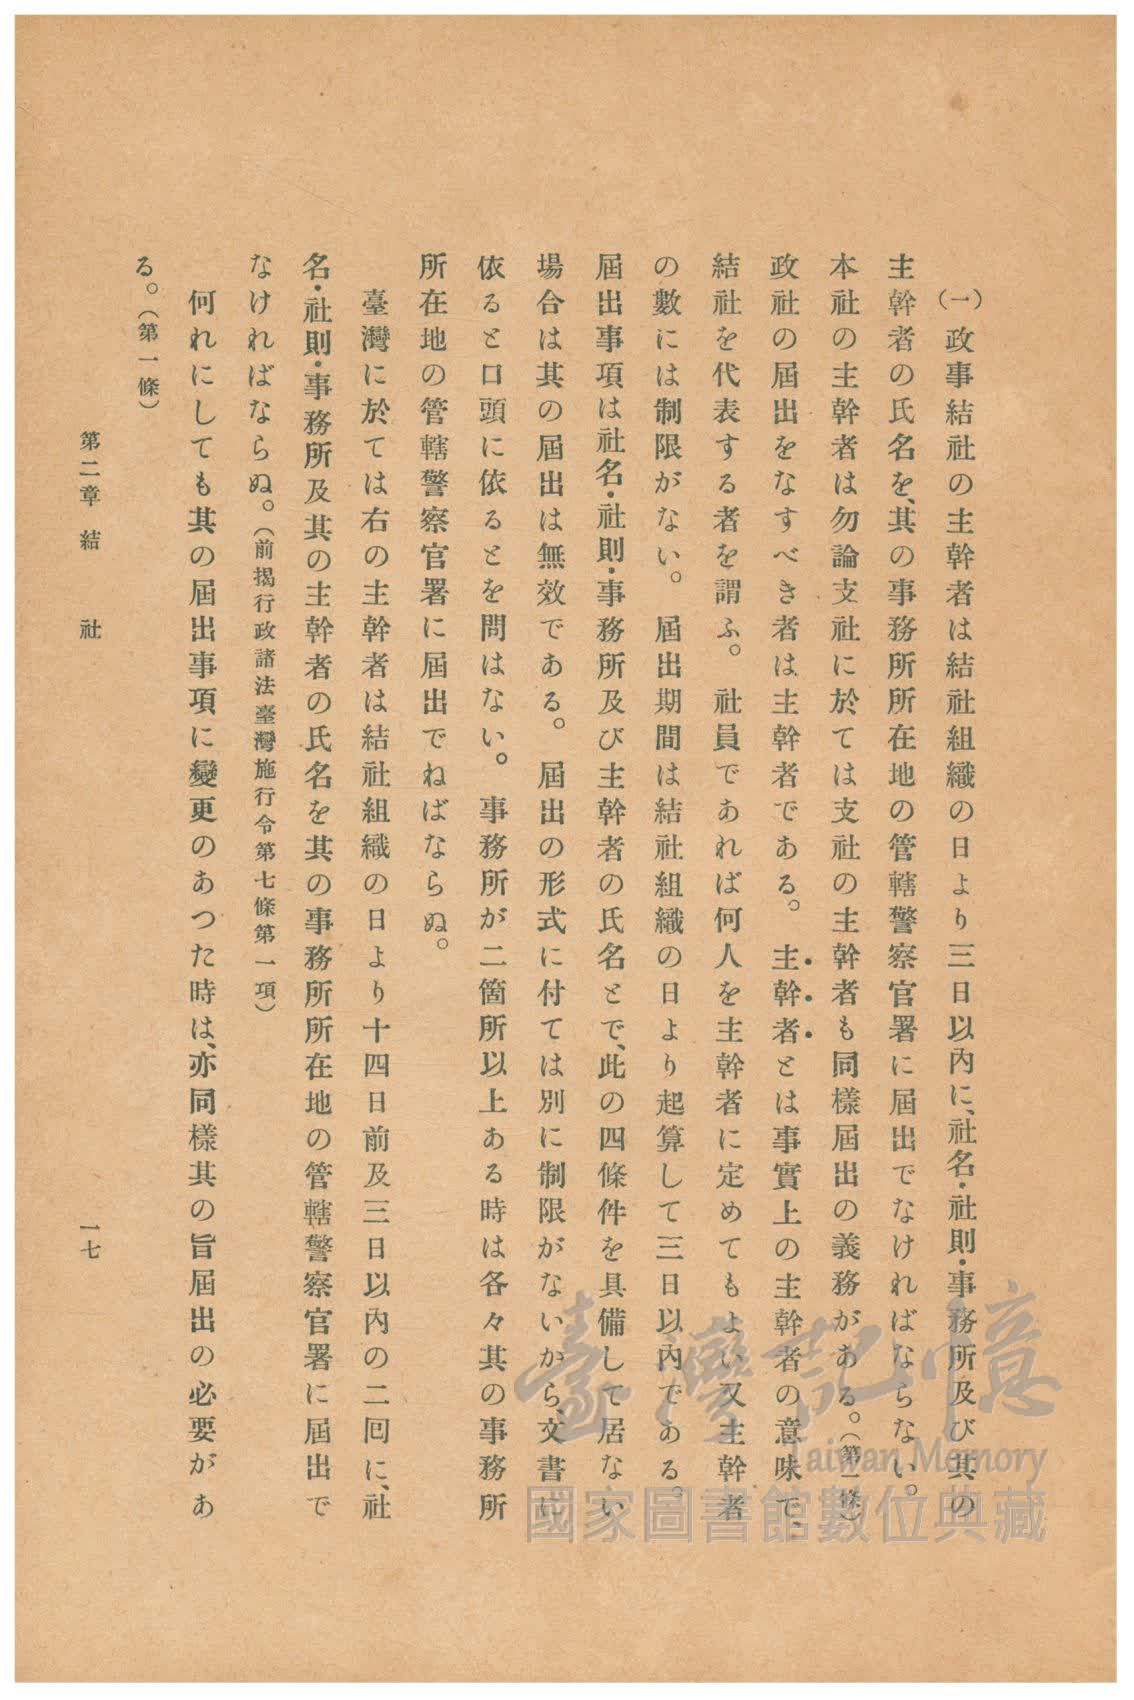 (一) 政事結社の主幹者は結社組織の日より三日以內に、社名・社則・事務所及び其の
主幹者の氏名を、其の事務所所在地の管轄警察官署に屆出でなければならない。
本社の主幹者は勿論支社に於ては支社の主幹者も同樣屆出の義務がある。(第一條)
政社の屆出をなすべき者は主幹者である。 主幹者とは事實上の主幹者の意味で、
結社を代表する者を謂ふ。 社員であれば何人を主幹者に定めてもよい又主幹者
の數には制限がない。 屆出期間は結社組織の日より起算して三日以內である。
屆出事項は社名・社則・事務所及び主幹者の氏名とで、此の四條件を具備して居ない
場合は其の屆出は無效である。 屆出の形式に付ては別に制限がないから、文書に
依ると口頭に依るとを問はない。 事務所が二箇所以上ある時は各々其の事務所
所在地の管轄警察官署に屆出でねばならぬ。
臺灣に於ては右の主幹者は結社組織の日より十四日前及三日以內の二回に、社
名・社則・事務所及其の主幹者の氏名を其の事務所所在地の管轄警察官署に屆出で
なければならぬ。(前揭行政諸法臺灣施行令第七條第一項)
何れにしても其の屆出事項に變更のあつた時は、亦同樣其の旨屆出の必要があ
る。(第一條)
第二章 結 社
一七
臺灣記憶
Taiwan Memory
國家圖書館數位典藏